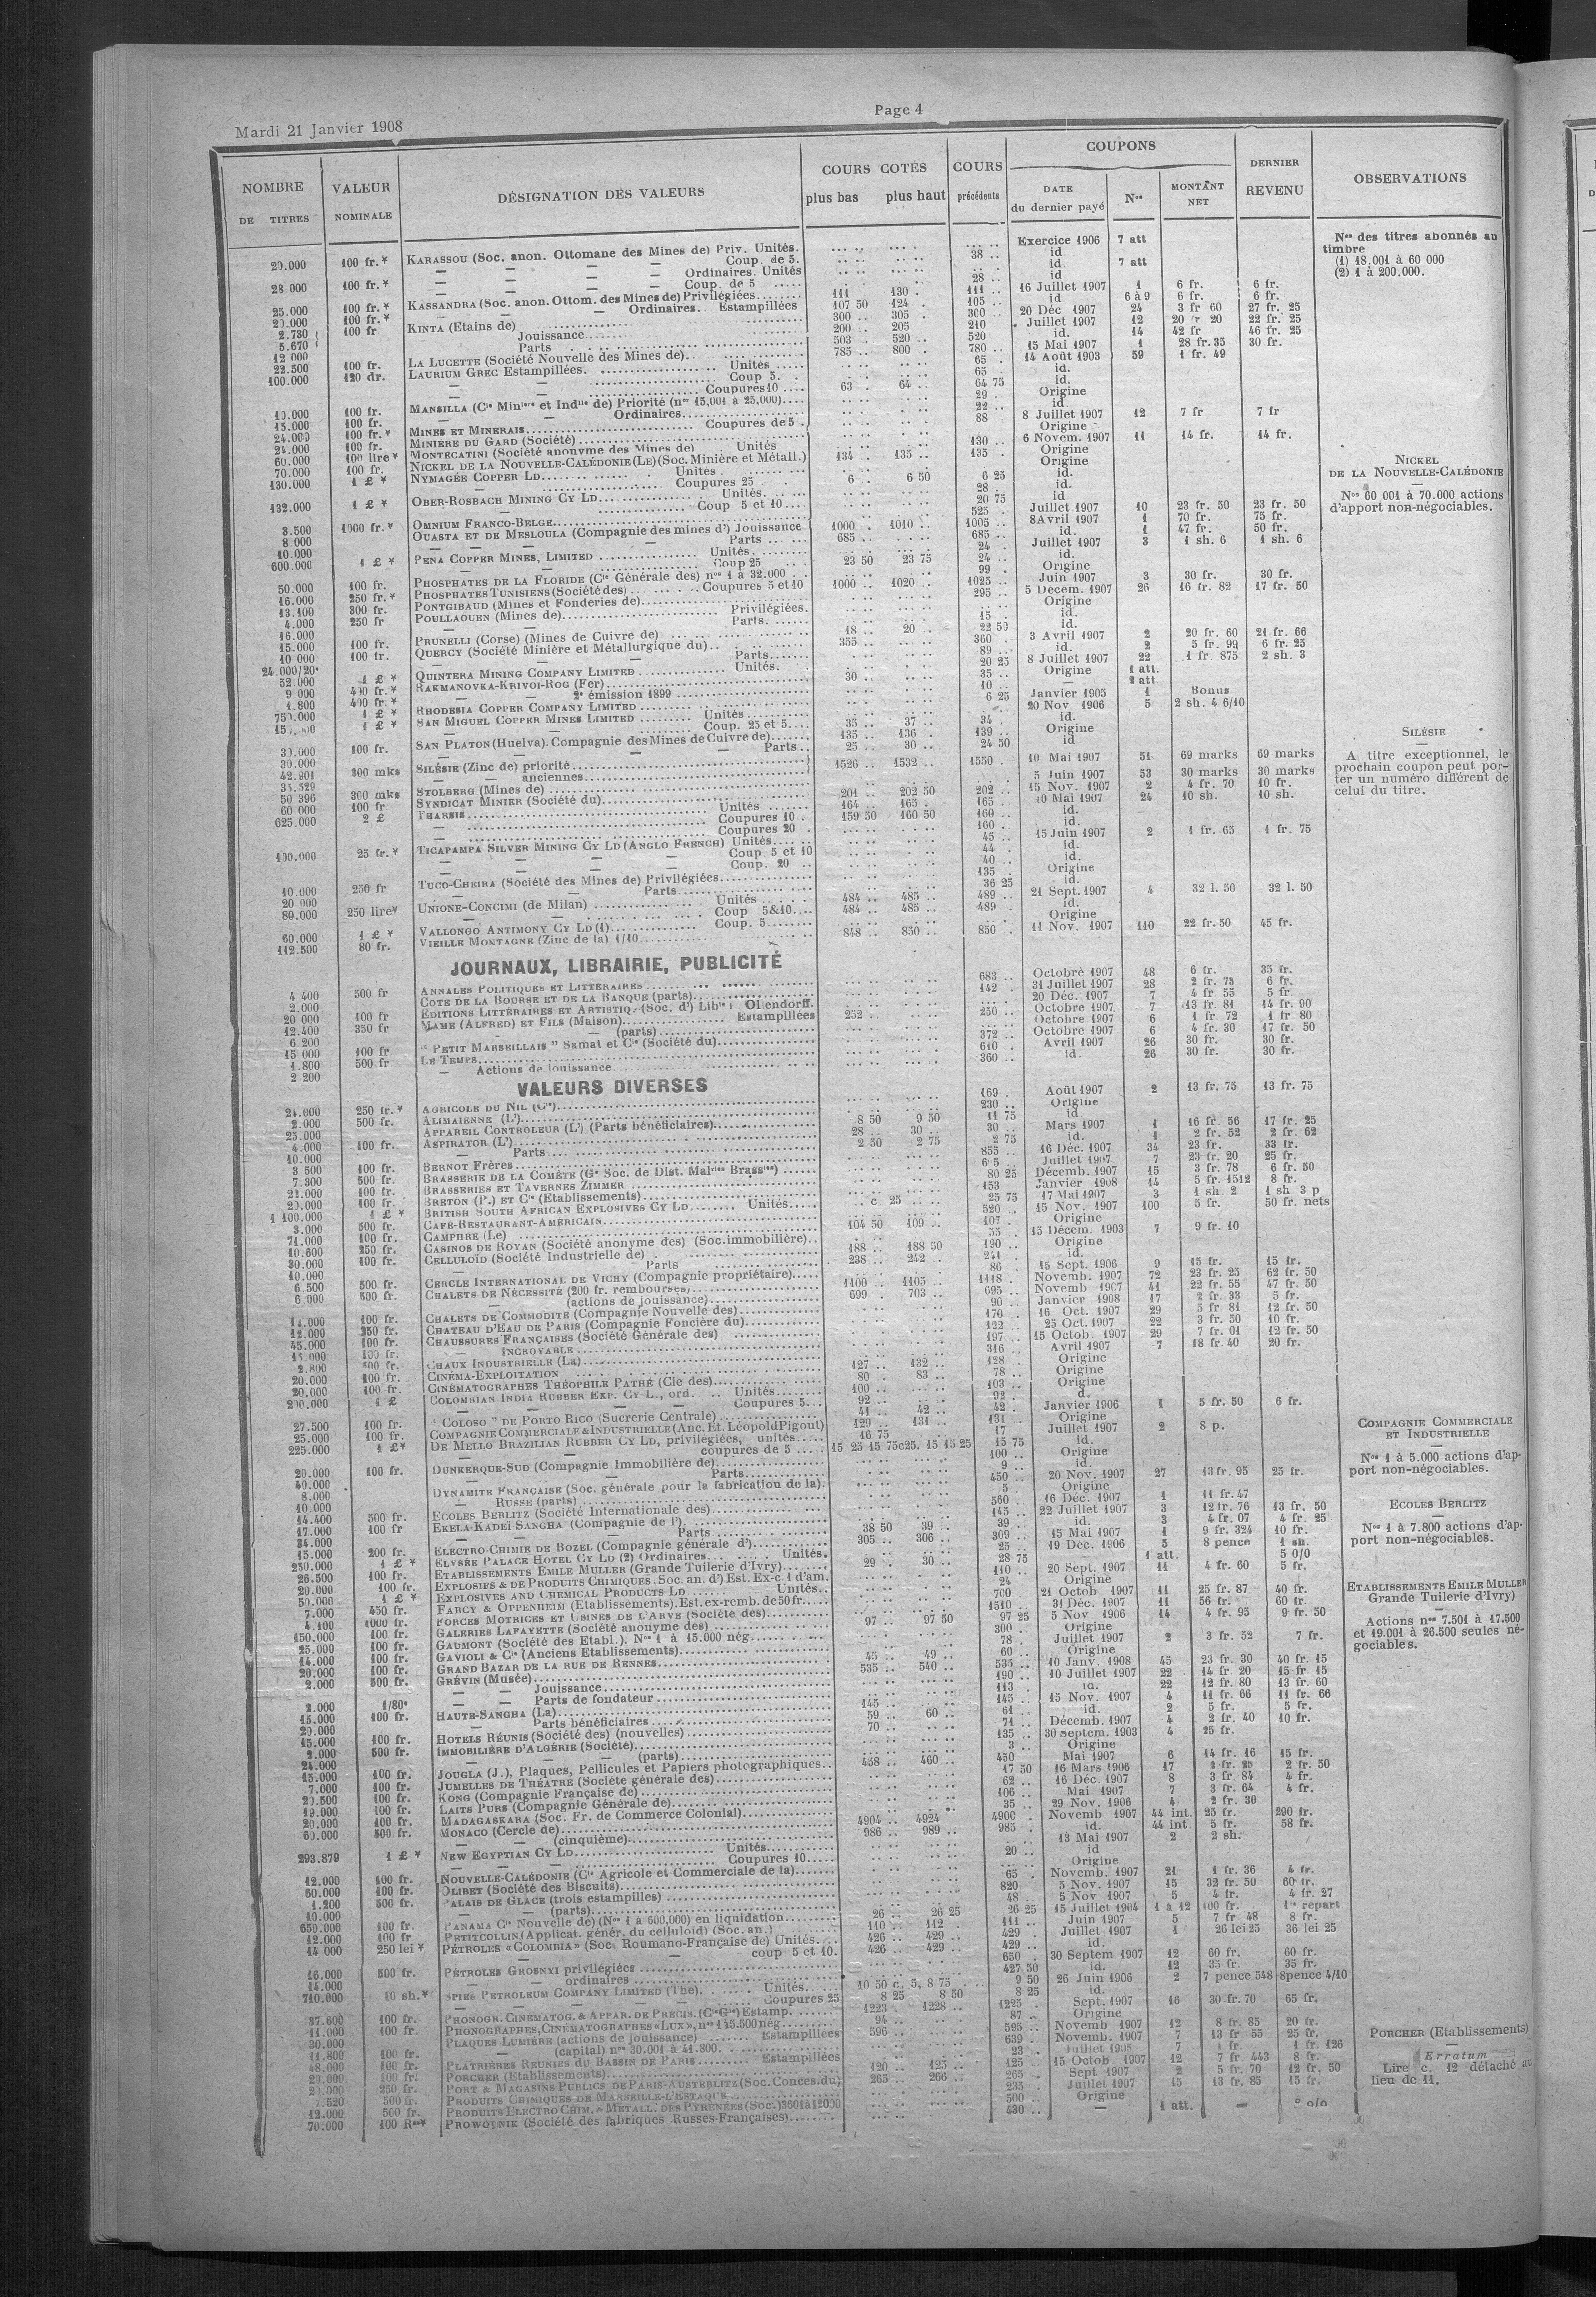 Mardi 21 Janvier 1908
Page 4
NOMBRE DE TITRES
VALEUR NOMINALE
DÉSIGNATION DES VALEURS
COURS COTÉS
plus bas plus haut
COURS précédents
COUPONS
DATE du dernier payé
Nos
MONTANT NET
DERNIER REVENU
OBSERVATIONS
20.000 100 fr.* KARASSOU (Soc. anon. Ottomane des Mines de) Priv. Unités. Exercice 1906 7 att
— — — — Coup. de 5. 38 .. id
28.000 100 fr.* — — — — Ordinaires. Unités id 7 att
— — — — Coup. de 5 28 .. id
25.000 100 fr.* KASSANDRA (Soc. anon. Ottom. des Mines de) Privilégiées 111 130 . 111 .. 16 Juillet 1907 1 6 fr. 6 fr.
20.000 100 fr.* — — Ordinaires. Estampillées 107 50 124 . 105 .. id 6 à 9 6 fr. 6 fr.
2.730 100 fr KINTA (Etains de) 300 .. 305 . 300 .. 20 Déc 1907 24 3 fr 60 27 fr. 25
5.670 Jouissance 200 .. 205 210 Juillet 1907 12 22 fr. 25
12 000 Parts 503 .. 520 .. 520 id. 14 42 fr 46 fr. 25
22.500 100 fr. LA LUCETTE (Société Nouvelle des Mines de) 785 .. 800 . 780 .. 15 Mai 1907 1 28 fr.35 30 fr.
100.000 120 dr. LAURIUM GREC Estampillées. Unités 65 . 14 Août 1903 59 1 fr. 49
— — Coup 5. 65 . id.
— — Coupures 10 63 . 64 .. 64 75 id.
10.000 100 fr. MANSILLA (Cie Minière et Indlle de) Priorité (nos 15,001 à 25,000) 29 . Origine
15.000 100 fr. — — Ordinaires 22 .. id
24.000 100 fr.* MINES ET MINERAIS Coupures de 5 88 8 Juillet 1907 12 7 fr 7 fr
24.000 100 fr. MINIÈRE DU GARD (Société) Origine
60.000 100 lire* MONTECATINI (Société anonyme des Mines de) Unités 130 .. 6 Novem. 1907 11 14 fr. 14 fr.
70.000 100 fr. NICKEL DE LA NOUVELLE-CALÉDONIE (LE) (Soc. Minière et Métall.) 134 . 135 .. 135 . Origine
130.000 1 £ * NYMAGÉE COPPER LD Unités Origine
— Coupures 25 6 . 6 50 6 25 id.
132.000 1 £ * OBER-ROSBACH MINING CY LD Unités. 28 . id.
— Coup 5 et 10 20 75 id
3.500 1000 fr.* OMNIUM FRANCO-BELGE 525 . Juillet 1907 10 23 fr. 50 23 fr. 50
8 000 OUASTA ET DE MESLOULA (Compagnie des mines d') Jouissance 1000 . 1010 .. 1005 .. 8 Avril 1907 1 70 fr. 75 fr.
10.000 — — — Parts 685 .. 685 .. id. 1 47 fr. 50 fr.
600.000 1 £ * PENA COPPER MINES, LIMITED Unités. 24 . Juillet 1907 3 1 sh. 6 1 sh. 6
— — Coup 25 23 50 23 75 24 .. id.
50.000 100 fr. PHOSPHATES DE LA FLORIDE (Cie Générale des) nos 1 à 32.000 99 . Origine
16.000 250 fr.* PHOSPHATES TUNISIENS (Société des) Coupures 5 et 10 1000 .. 1020 .. 1025 .. Juin 1907 3 30 fr. 30 fr.
13.100 300 fr. PONTGIBAUD (Mines et Fonderies de) 295 .. 5 Décem. 1907 26 16 fr. 82 17 fr. 50
4.000 250 fr POULLAOUEN (Mines de) Privilégiées. Origine
16.000 — Parts. 15 . id.
15.000 100 fr. PRUNELLI (Corse) (Mines de Cuivre de) 18 .. 20 .. 22 50 id.
10 000 100 fr. QUERCY (Société Minière et Métallurgique du) 355 .. 360 . 3 Avril 1907 2 20 fr. 60 21 fr. 66
— Parts 89 .. id. 2 6 fr. 25
52.000 1 £ * QUINTERA MINING COMPANY LIMITED Unités. 20 25 8 Juillet 1907 22 1 fr. 875 2 sh. 3
9 000 400 fr.* RAKMANOVKA-KRIVOI-ROG (Fer) 30 .. 35 .. Origine 1 att.
1.800 400 fr.* — — 2e émission 1899 10 .. — 2 att
750.000 1 £ * RHODESIA COPPER COMPANY LIMITED 6 25 Janvier 1905 1 Bonus
1 £ * SAN MIGUEL COPPER MINES LIMITED Unités 20 Nov 1906 5 2 sh. 4 6/10
— Coup. 25 et 5 35 .. 37 .. 34 . id.
30.000 100 fr. SAN PLATON (Huelva). Compagnie des Mines de Cuivre de) 135 .. 136 . 139 .. Origine
30.000 — — Parts 25 .. 30 .. 24 50 id
42.901 300 mks SILÉSIE (Zinc de) priorité 1526 .. 1532 .. 1550 . 10 Mai 1907 51 69 marks 69 marks
— — anciennes
50 396 300 mks STOLBERG (Mines de) 5 Juin 1907 53 30 marks 30 marks
60 000 100 fr SYNDICAT MINIER (Société du) 201 .. 202 50 202 .. 15 Nov. 1907 2 4 fr. 70 10 fr.
625.000 2 £ THARSIS Unités 164 .. 165 . 165 . 10 Mai 1907 24 10 sh. 10 sh.
— Coupures 10 . 159 50 160 50 160 .. id.
— Coupures 20 . 160 .. id.
100.000 25 fr.* TICAPAMPA SILVER MINING CY LD (ANGLO FRENCH) Unités 45 .. 15 Juin 1907 2 1 fr. 65 1 fr. 75
— — — — Coup. 5 et 10 44 . id.
— — — — Coup. 20 40 .. id.
10.000 250 fr TUCO-CHEIRA (Société des Mines de) Privilégiées 135 . Origine
20 000 — Parts 36 25 id.
80.000 250 lire* UNIONE-CONCIMI (de Milan) Unités 484 .. 485 .. 489 .. 21 Sept. 1907 4 32 l. 50 32 l. 50
— — Coup 5&10 484 .. 485 .. 489 . id.
60.000 1 £ * VALLONGO ANTIMONY CY LD (1) Coup. 5 Origine
112.500 80 fr. VIEILLE MONTAGNE (Zinc de la) 1/10 848 .. 850 .. 850 . 11 Nov. 1907 110 22 fr. 50 45 fr.
JOURNAUX, LIBRAIRIE, PUBLICITÉ
4 400 500 fr ANNALES POLITIQUES ET LITTÉRAIRES 683 .. Octobre 1907 48 6 fr. 35 fr.
2.000 COTE DE LA BOURSE ET DE LA BANQUE (parts) 142 . 31 Juillet 1907 28 6 fr.
20 000 100 fr EDITIONS LITTÉRAIRES ET ARTISTIQ. (Soc. d') Librie Ollendorff. 20 Déc. 1907 7 4 fr 55 5 fr.
12.400 350 fr MAME (ALFRED) ET FILS (Maison) Estampillées 252 .. 250 .. Octobre 1907 7 13 fr. 81 14 fr. 90
6 200 — — (parts) Octobre 1907 6 1 fr. 72 1 fr 80
15 000 100 fr "PETIT MARSEILLAIS" Samat et Cie (Société du) 372 .. Octobre 1907 6 4 fr. 30 17 fr. 50
1.800 500 fr LE TEMPS 610 . Avril 1907 26 30 fr. 30 fr.
2 200 — Actions de jouissance 360 .. id 26 30 fr. 30 fr.
VALEURS DIVERSES
24.000 250 fr.* AGRICOLE DU NIL (Cie) 169 . Août 1907 2 13 fr. 75 13 fr. 75
2.000 500 fr. ALIMAIENNE (L') 230 .. Origine
25.000 APPAREIL CONTRÔLEUR (L') (Parts bénéficiaires) 8 50 9 50 11 75 id
4.000 100 fr. ASPIRATOR (L') 28 .. 30 .. 30 .. Mars 1907 1 16 fr. 56 17 fr. 25
10.000 — Parts 2 50 2 75 2 75 id. 1 2 fr. 52 2 fr. 62
3 500 100 fr. BERNOT Frères 855 .. 16 Déc. 1907 34 23 fr. 33 fr.
7.300 500 fr. BRASSERIE DE LA COMÈTE (Ge Soc. de Dist. Malries Brassies) Juillet 1907 7 23 fr. 20 25 fr.
22.000 100 fr. BRASSERIES ET TAVERNES ZIMMER 80 25 Décemb. 1907 15 3 fr. 78 6 fr. 50
20.000 100 fr. BRETON (P.) ET Cie (Etablissements) 153 Janvier 1908 14 5 fr. 1512 8 fr.
1 100.000 1 £ * BRITISH SOUTH AFRICAN EXPLOSIVES CY LD Unités .. c 25 .. 25 75 17 Mai 1907 3 1 sh. 2 1 sh 3 p
3.000 500 fr. CAFÉ-RESTAURANT-AMÉRICAIN 520 .. 15 Nov. 1907 100 5 fr. 50 fr. nets
71.000 100 fr. CAMPHRE (Le) 104 50 109 .. 107 . Origine
10.600 250 fr. CASINOS DE ROYAN (Société anonyme des) (Soc. immobilière) 15 Décem. 1903 7 9 fr. 10
30.000 100 fr. CELLULOÏD (Société Industrielle de) 188 .. 188 50 190 .. Origine
10.000 Parts 238 .. 242 . 241 . id.
6.500 500 fr. CERCLE INTERNATIONAL DE VICHY (Compagnie propriétaire) 86 15 Sept. 1906 9 15 fr. 15 fr.
6.000 500 fr. CHALETS DE NÉCESSITÉ (200 fr. remboursés) 1100 .. 1105 .. 1118 . Novemb. 1907 72 23 fr. 25 62 fr. 50
— (actions de jouissance) 699 . 703 .. 695 .. Novemb 1907 41 22 fr. 55 47 fr. 50
100 fr. CHALETS DE COMMODITÉ (Compagnie Nouvelle des) 90 .. Janvier 1908 17 2 fr. 33 5 fr.
12.000 250 fr. CHATEAU D'EAU DE PARIS (Compagnie Foncière du) 170 . 16 Oct. 1907 29 5 fr 81 12 fr. 50
45.000 100 fr. CHAUSSURES FRANÇAISES (Société Générale des) 122 .. 25 Oct. 1907 22 3 fr. 50 10 fr.
100 fr. — INCROYABLE 197 .. 15 Octob. 1907 29 7 fr. 01 12 fr. 50
2.800 CHAUX INDUSTRIELLE (La) 316 .. Avril 1907 7 18 fr. 40 20 fr.
20.000 100 fr. CINÉMA-EXPLOITATION 127 .. 132 .. 128 Origine
20.000 100 fr. CINÉMATOGRAPHES THÉOPHILE PATHÉ (Cie des) 80 . 83 .. 78 .. Origine
200.000 1 £ COLOMBIAN INDIA RUBBER EXP. CY L., ord. Unités 100 .. 103 .. Origine
— — — Coupures 5 92 .. 92 .
27.500 100 fr. "COLOSO" DE PORTO RICO (Sucrerie Centrale) 41 .. 42 .. 42 . Janvier 1906 1 5 fr. 50 6 fr.
25.000 100 fr. COMPAGNIE COMMERCIALE & INDUSTRIELLE (Anc. Et. Léopold Pigout) 129 .. 131 .. 131 . Origine
225.000 1 £* DE MELLO BRAZILIAN RUBBER CY LD, privilégiées, unités 16 75 17 Juillet 1907 2 8 p.
— — coupures de 5 15 25 15 75 c25. 15 15 25 15 75 id.
20.000 100 fr. DUNKERQUE-SUD (Compagnie Immobilière de) 100 .. Origine
40.000 — — Parts 9 .. id.
8.000 DYNAMITE FRANÇAISE (Soc. générale pour la fabrication de la) 450 .. 20 Nov. 1907 27 13 fr. 95 25 fr.
10.000 — RUSSE (parts) 5 Origine
14.400 500 fr. ECOLES BERLITZ (Société Internationale des) 560 . 16 Déc. 1907 1 11 fr. 47
17.000 100 fr EKELA-KADEÏ SANGHA (Compagnie de l') 145 .. 22 Juillet 1907 3 12 fr. 76 13 fr. 50
34.000 — — Parts 38 50 39 .. 39 .. id. 3 4 fr. 07 4 fr. 25
15.000 200 fr. ELECTRO-CHIMIE DE BOZEL (Compagnie générale d') 305 .. 306 .. 309 .. 15 Mai 1907 1 9 fr. 324 10 fr.
250.000 1 £ * ELYSÉE PALACE HOTEL CY LD (2) Ordinaires Unités. 25 .. 19 Déc. 1906 5 8 pence 1 sh.
26.500 100 fr. ETABLISSEMENTS EMILE MULLER (Grande Tuilerie d'Ivry) 29 . 30 .. 28 75 — 1 att. 5 0/0
20.000 100 fr. EXPLOSIFS & DE PRODUITS CHIMIQUES, Soc. an. d') Est. Ex-c. 1 d'am. 110 .. 20 Sept. 1907 11 4 fr. 60 5 fr.
50.000 1 £ * EXPLOSIVES AND CHEMICAL PRODUCTS LD Unités 24 Origine
7.000 450 fr. FARCY & OPPENHEIM (Etablissements). Est. ex-remb. de 50 fr. 700 . 21 Octob 1907 11 25 fr. 87 40 fr.
4.100 1000 fr. FORCES MOTRICES ET USINES DE L'ARVE (Société des) 1510 .. 31 Déc. 1907 11 56 fr. 60 fr.
150.000 100 fr. GALERIES LAFAYETTE (Société anonyme des) 97 .. 97 50 97 25 5 Nov. 1906 14 4 fr. 95 9 fr. 50
25.000 100 fr. GAUMONT (Société des Etabl.). Nos 1 à 15.000 nég 300 . Origine
14.000 100 fr. GAVIOLI & Cie (Anciens Etablissements) 78 . Juillet 1907 2 3 fr. 52 7 fr.
20.000 100 fr. GRAND BAZAR DE LA RUE DE RENNES 45 .. 49 .. 60 .. Origine
2.000 500 fr. GRÉVIN (Musée) 535 .. 540 .. 535 .. 10 Janv. 1908 45 23 fr. 30 40 fr. 15
— — Jouissance 190 .. 10 Juillet 1907 22 14 fr. 20 15 fr 15
2.000 1/80e — — Parts de fondateur 113 . id. 22 12 fr. 80 13 fr. 60
15.000 100 fr. HAUTE-SANGHA (La) 145 .. 145 .. 15 Nov. 1907 4 11 fr. 66 11 fr. 66
20.000 — Parts bénéficiaires 59 .. 60 .. 61 .. id. 2 5 fr. 5 fr.
15.000 100 fr. HOTELS RÉUNIS (Société des) (nouvelles) 70 .. 71 .. Décemb. 1907 4 2 fr. 40 10 fr.
2.000 500 fr. IMMOBILIÈRE D'ALGÉRIE (Société) 135 .. 30 septem. 1903 4 25 fr.
24.000 — — (parts) 3 .. Origine
15.000 100 fr. JOUGLA (J.), Plaques, Pellicules et Papiers photographiques 458 .. 460 .. 450 Mai 1907 6 14 fr. 16 15 fr.
7.000 100 fr. JUMELLES DE THÉATRE (Société générale des) 17 50 16 Mars 1906 17 2 fr. 50
20.500 100 fr. KONG (Compagnie Française de) 62 .. 16 Déc. 1907 8 3 fr. 84 4 fr.
19.000 100 fr. LAITS PURS (Compagnie Générale de) 106 .. Mai 1907 7 3 fr. 64 4 fr.
20.000 100 fr. MADAGASKARA (Soc. Fr. de Commerce Colonial) 35 .. 29 Nov. 1906 4 2 fr. 30
60.000 500 fr. MONACO (Cercle de) 4904 .. 4924 4900 . Novemb 1907 44 int. 25 fr. 290 fr.
— — (cinquième) 986 .. 989 .. 985 . id. 44 int. 5 fr. 58 fr.
293.879 1 £ * NEW EGYPTIAN CY LD Unités 13 Mai 1907 2 2 sh.
— — Coupures 10 20 .. id
12.000 100 fr. NOUVELLE-CALÉDONIE (Cie Agricole et Commerciale de la) Origine
60.000 100 fr. OLIBET (Société des Biscuits) 65 . Novemb. 1907 21 1 fr. 36 4 fr.
1.200 500 fr. PALAIS DE GLACE (trois estampilles) 820 5 Nov. 1907 15 32 fr. 50 60 fr.
10.000 — — (parts) 48 5 Nov 1907 5 4 fr. 4 fr. 27
650.000 100 fr. PANAMA Cie Nouvelle de) (Nos 1 à 600,000) en liquidation 26 .. 26 25 26 25 15 Juillet 1904 1 à 12 100 fr. 1re répart
12.000 100 fr PETITCOLLIN (Applicat. génér. du celluloïd) (Soc. an.) 110 .. 112 . 111 .. Juin 1907 5 7 fr 48 8 fr.
14 000 250 lei * PÉTROLES «COLOMBIA» (Soc. Roumano-Française de) Unités 426 .. 429 .. 429 . Juillet 1907 1 26 lei 25 36 lei 25
— coup 5 et 10. 426 .. 429 .. 429 .. id.
16.000 500 fr. PÉTROLES GROSNYI privilégiées 650 . 30 Septem 1907 12 60 fr. 60 fr.
14.000 — — ordinaires 427 50 id. 12 35 fr. 35 fr.
710.000 10 sh.* SPIES PETROLEUM COMPANY LIMITED (The). Unités 10 50 c. 5, 8 75 9 50 26 Juin 1906 2 7 pence 548 8pence 4/10
— — Coupures 25 8 25 8 50 8 25 id.
37.600 100 fr. PHONOGR. CINÉMATOG. & APPAR. DE PRÉCIS. (Cie Gle) Estamp. 1223 . 1228 .. 1225 . Sept. 1907 16 30 fr. 70 65 fr.
11.000 100 fr. PHONOGRAPHES, CINÉMATOGRAPHES «LUX», nos 1 à 5.500 nég 94 .. 87 .. Origine
30.000 PLAQUES LUMIÈRE (actions de jouissance) Estampillées 596 .. 595 .. Novemb 1907 12 8 fr. 85 20 fr.
11.800 100 fr. — (capital) nos 30.001 à 41.800 639 .. Novemb. 1907 7 13 fr 55 25 fr.
48.000 100 fr. PLATRIÈRES RÉUNIES du BASSIN DE PARIS Estampillées 23 .. 7 1 fr. 1 fr. 126
20.000 100 fr. PORCHER (Etablissements) 120 .. 125 .. 125 .. 15 Octob 1907 12 7 fr 443 8 fr.
250 fr. PORT & MAGASINS PUBLICS DE PARIS-AUSTERLITZ (Soc. Conces. du) 265 .. 266 .. 265 . Sept 1907 2 5 fr. 70 12 fr. 50
500 fr. PRODUITS CHIMIQUES DE MARSEILLE-L'ESTAQUE 235 . Juillet 1907 15 13 fr. 85 15 fr.
12.000 500 fr. PRODUITS ELECTRO CHIM. & MÉTALL. DES PYRÉNÉES (Soc.) 3601 à 12000 500 .. Origine
70.000 100 Res* PROWODNIK (Société des fabriques Russes-Françaises) 430 .. — 1 att. —
Nos des titres abonnés au
timbre
(1) 18.001 à 60 000
(2) 1 à 200.000.
NICKEL
DE LA NOUVELLE-CALÉDONIE
Nos 60 001 à 70.000 actions
d'apport non-négociables.
SILÉSIE
A titre exceptionnel, le
prochain coupon peut por-
ter un numéro différent de
celui du titre.
COMPAGNIE COMMERCIALE
ET INDUSTRIELLE
Nos 1 à 5.000 actions d'ap-
port non-négociables.
ECOLES BERLITZ
Nos 1 à 7.800 actions d'ap-
port non-négociables.
ETABLISSEMENTS EMILE MULLER
Grande Tuilerie d'Ivry)
Actions nos 7.501 à 17.500
et 19.001 à 26.500 seules né-
gociables.
PORCHER (Etablissements)
Erratum
Lire c. 12 détaché au
lieu de 11.